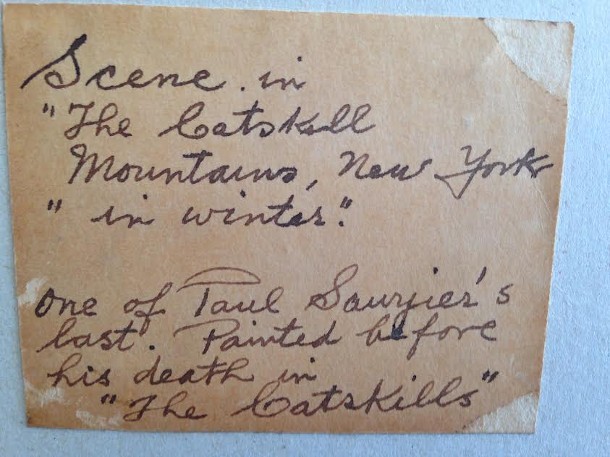 Scene. in
"The Catskill
Mountains, New York
" in winter."
One of Paul Saurjier's
last. Painted before
his death in
"The Catskills"